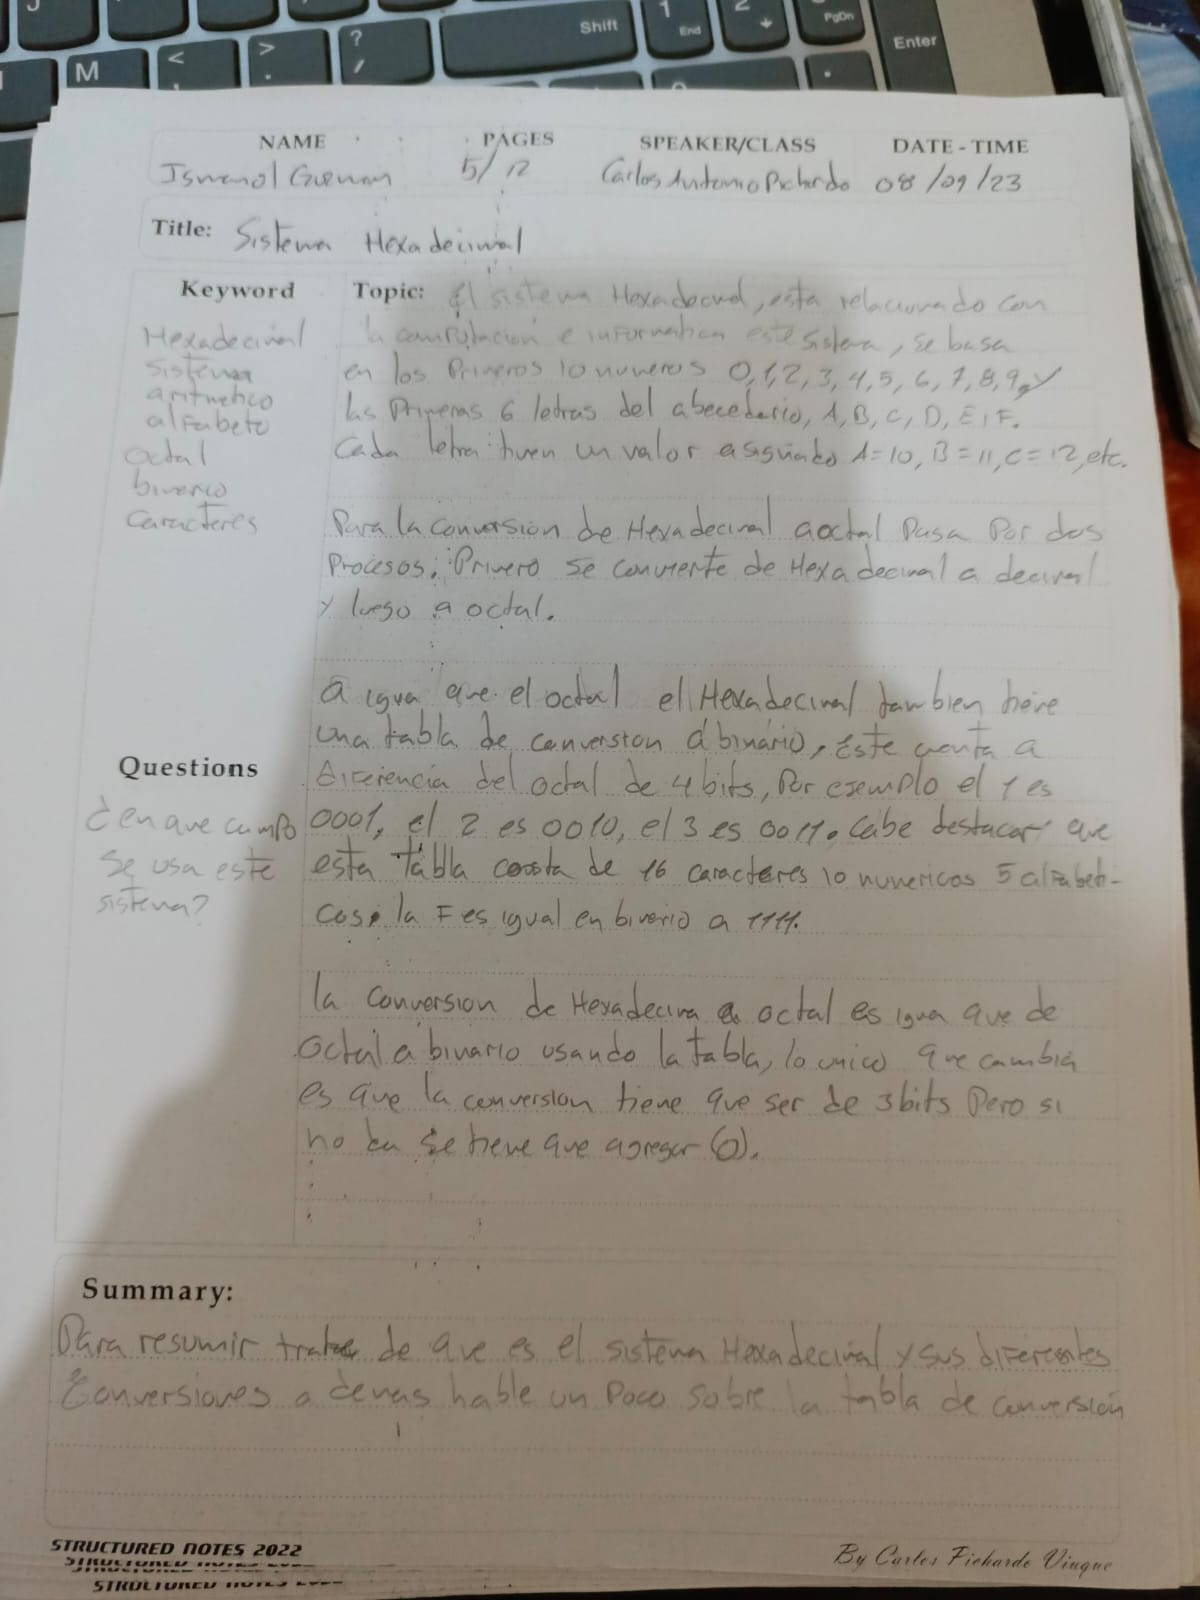 Shift
1
End
2
PgDn
Enter
M
<
>
.
?
/
.
NAME
PAGES
SPEAKER/CLASS
DATE - TIME
Guzman
5/12
Carlos Antonio Pichardo
08/09/23
Title: Sistema Hexadecimal
Keyword
Hexadecimal
sistema
aritmetico
alfabeto
octal
binario
caracteres
Questions
¿en que campo
se usa este
sistema?
Topic: El sistema Hexadecimal, esta relacionado con
la computación e informatica este sistema, se basa
en los Primeros 10 numeros 0,1,2,3,4,5,6,7,8,9, y
las Primeras 6 letras del abecedario, A, B, C, D, E, F.
Cada letra tienen un valor asignado A=10, B=11, C=12, etc.
Para la conversion de Hexadecimal a octal Pasa Por dos
Procesos; Primero se convierte de Hexadecimal a decimal
y luego a octal.
a igua que el octal el Hexadecimal tambien tiene
una tabla de conversion a binario, Este cuenta a
diferencia del octal de 4 bits, Por ejemplo el 1 es
0001, el 2 es 0010, el 3 es 0011. Cabe destacar que
esta tabla consta de 16 caracteres 10 numericos 5 alfabeti-
cos, la F es igual en binario a 1111.
la conversion de Hexadecima a octal es igua que de
octal a binario usando la tabla, lo unico que cambia
es que la conversion tiene que ser de 3 bits Pero si
no da se tiene que agregar (0).
Summary:
Para resumir trate de que es el sistema Hexadecimal y sus diferentes
Conversiones a demas hable un Poco sobre la tabla de conversión
STRUCTURED NOTES 2022
By Carlos Pichardo Viuque